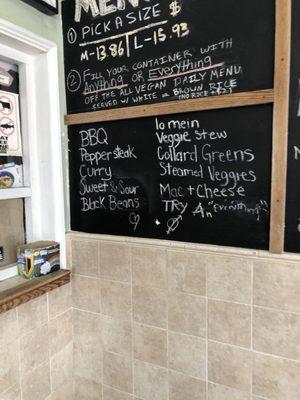 MENU
① PICK A SIZE $
M-13.86 L-15.93
② Fill your container with
Anything or Everything
off the all vegan daily menu
served w/ white or brown rice
(no rice $
BBQ
Pepper steak
Curry
Sweet & Sour
Black Beans
lo mein
Veggie Stew
Collard Greens
Steamed Veggies
Mac + Cheese
TRY An "Everything"